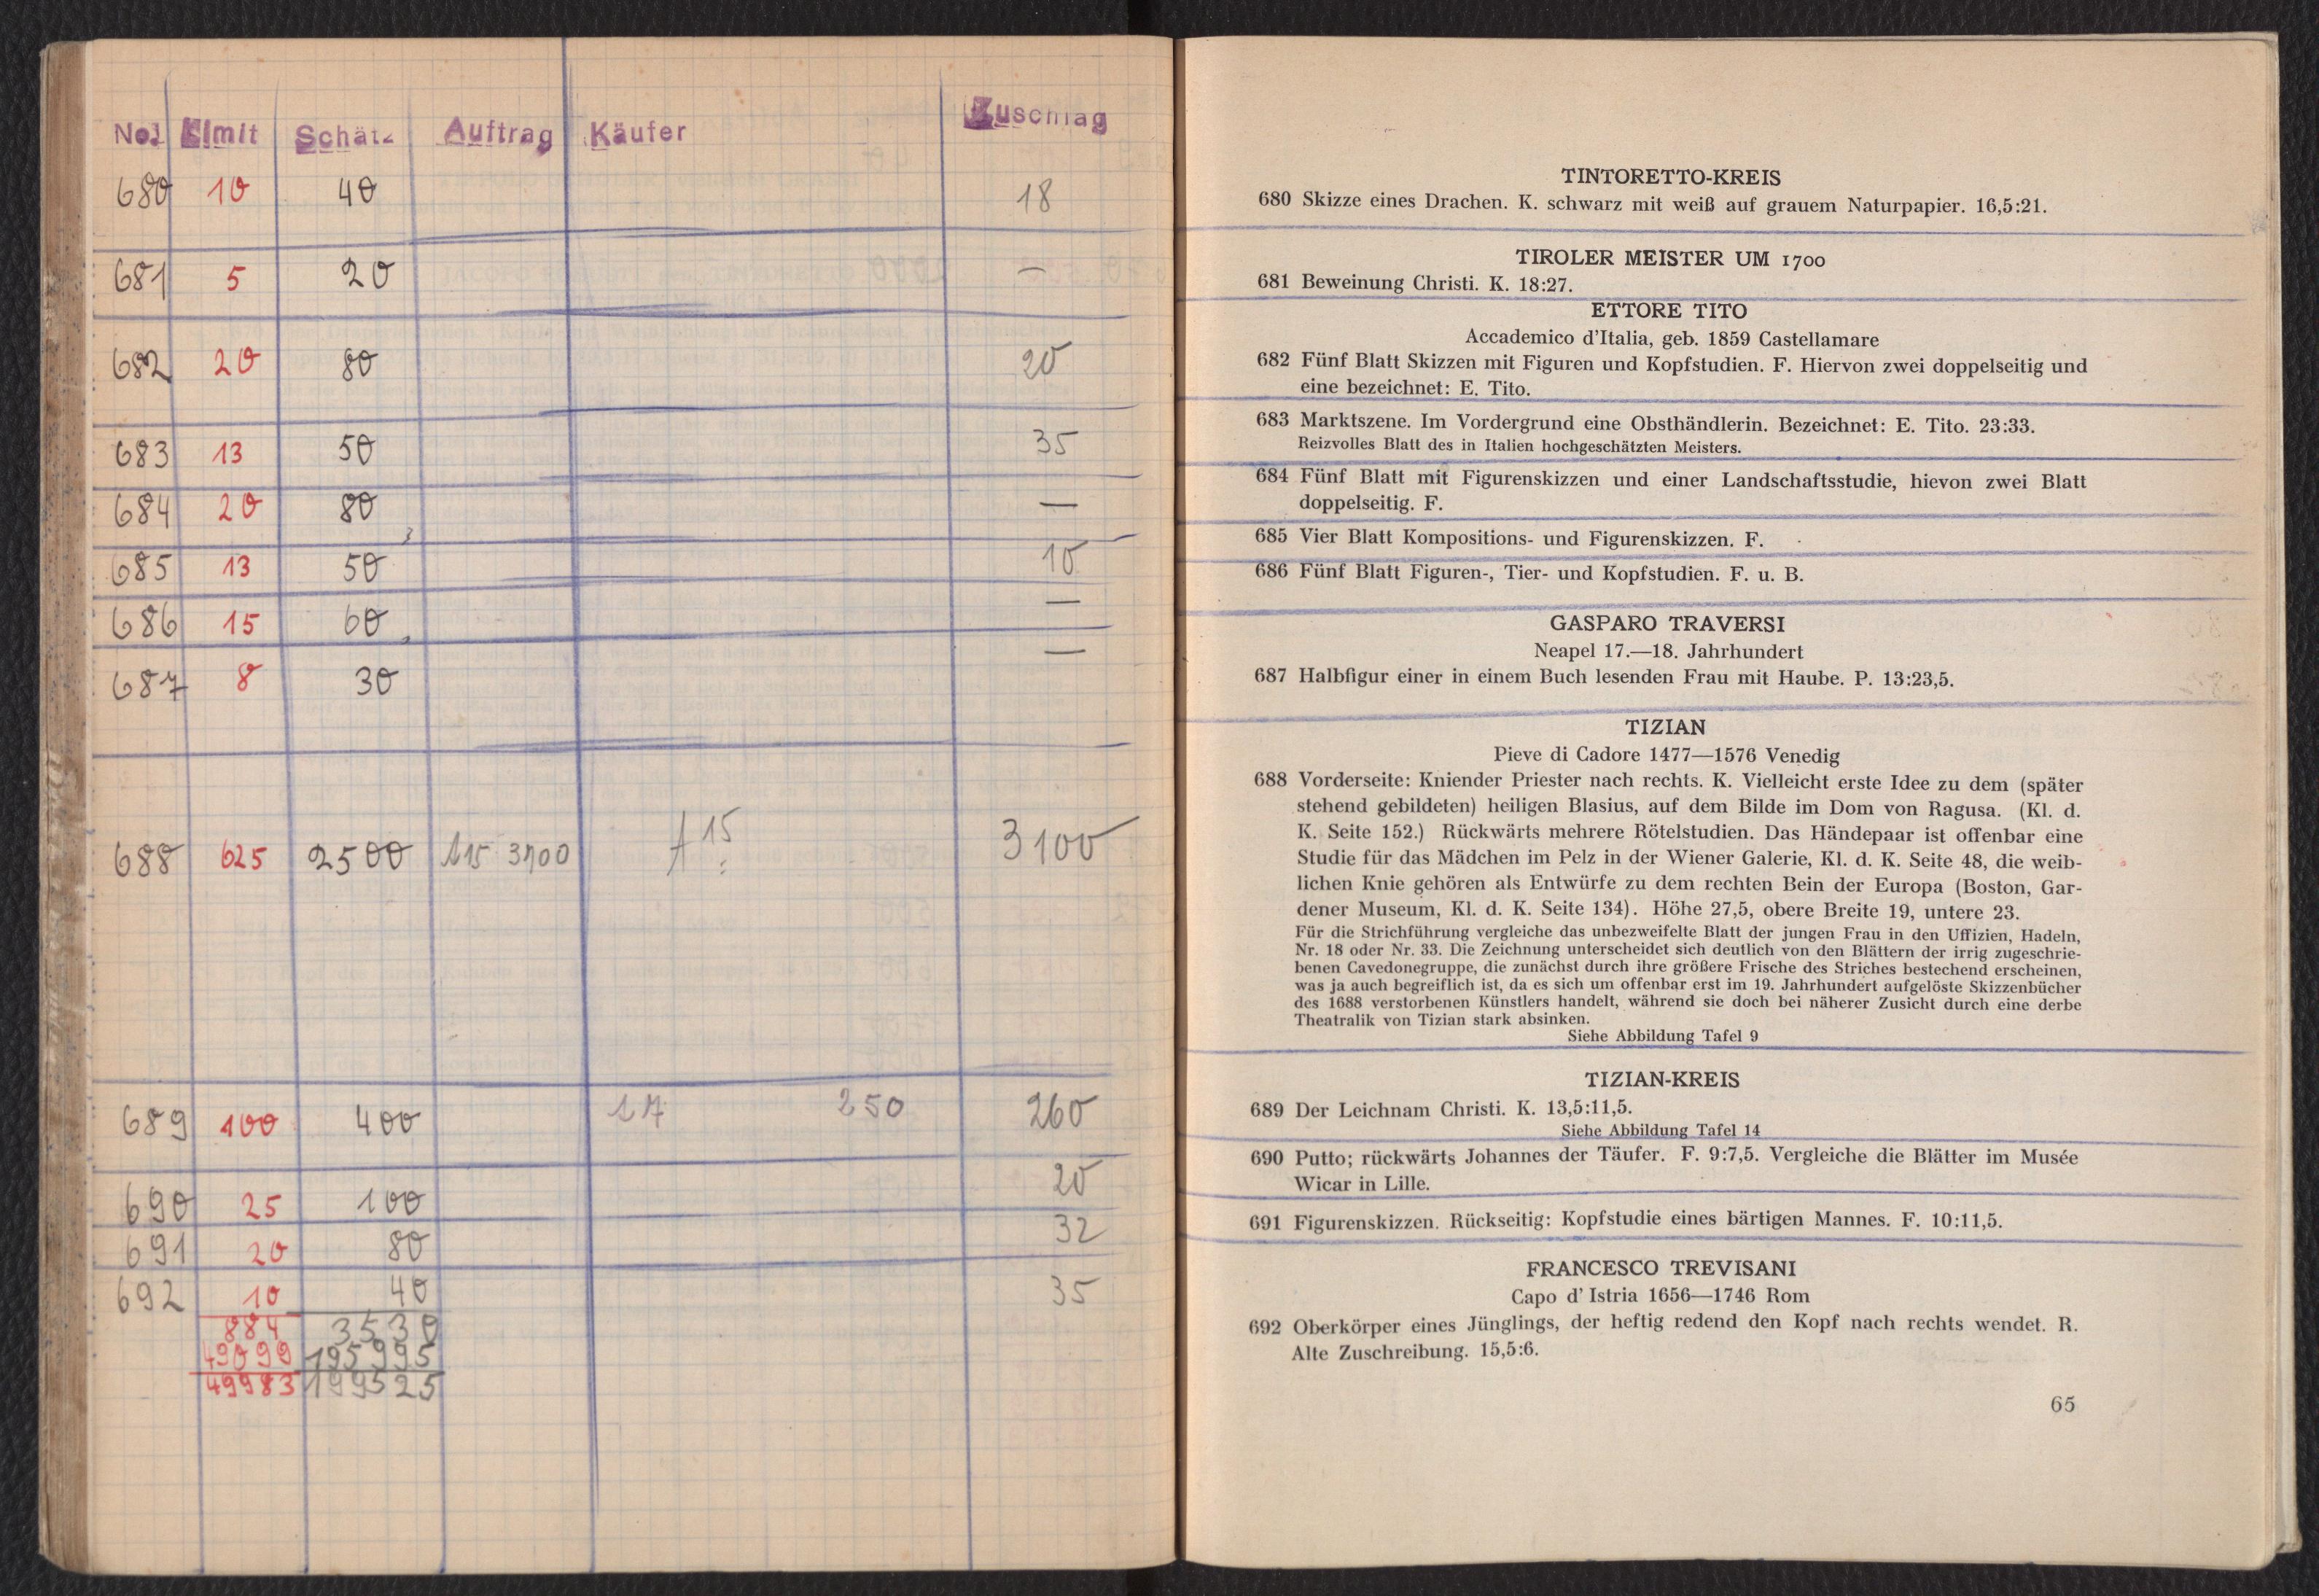 No. Limit Schätz Auftrag Käufer Zuschlag
680 10 40 18
681 5 20 —
682 20 80 20
683 13 50 35
684 20 80 —
685 13 50 10
686 15 60 —
687 8 30 —
688 625 2500 A15 3100 A15 3100
689 100 400 17 250 260
690 25 100 20
691 20 80 32
692 10 40 35
884 3530
49099 195995
49983 199525
TINTORETTO-KREIS
680 Skizze eines Drachen. K. schwarz mit weiß auf grauem Naturpapier. 16,5:21.
TIROLER MEISTER UM 1700
681 Beweinung Christi. K. 18:27.
ETTORE TITO
Accademico d'Italia, geb. 1859 Castellamare
682 Fünf Blatt Skizzen mit Figuren und Kopfstudien. F. Hiervon zwei doppelseitig und
eine bezeichnet: E. Tito.
683 Marktszene. Im Vordergrund eine Obsthändlerin. Bezeichnet: E. Tito. 23:33.
Reizvolles Blatt des in Italien hochgeschätzten Meisters.
684 Fünf Blatt mit Figurenskizzen und einer Landschaftsstudie, hievon zwei Blatt
doppelseitig. F.
685 Vier Blatt Kompositions- und Figurenskizzen. F.
686 Fünf Blatt Figuren-, Tier- und Kopfstudien. F. u. B.
GASPARO TRAVERSI
Neapel 17.—18. Jahrhundert
687 Halbfigur einer in einem Buch lesenden Frau mit Haube. P. 13:23,5.
TIZIAN
Pieve di Cadore 1477—1576 Venedig
688 Vorderseite: Kniender Priester nach rechts. K. Vielleicht erste Idee zu dem (später
stehend gebildeten) heiligen Blasius, auf dem Bilde im Dom von Ragusa. (Kl. d.
K. Seite 152.) Rückwärts mehrere Rötelstudien. Das Händepaar ist offenbar eine
Studie für das Mädchen im Pelz in der Wiener Galerie, Kl. d. K. Seite 48, die weib-
lichen Knie gehören als Entwürfe zu dem rechten Bein der Europa (Boston, Gar-
dener Museum, Kl. d. K. Seite 134). Höhe 27,5, obere Breite 19, untere 23.
Für die Strichführung vergleiche das unbezweifelte Blatt der jungen Frau in den Uffizien, Hadeln,
Nr. 18 oder Nr. 33. Die Zeichnung unterscheidet sich deutlich von den Blättern der irrig zugeschrie-
benen Cavedonegruppe, die zunächst durch ihre größere Frische des Striches bestechend erscheinen,
was ja auch begreiflich ist, da es sich um offenbar erst im 19. Jahrhundert aufgelöste Skizzenbücher
des 1688 verstorbenen Künstlers handelt, während sie doch bei näherer Zusicht durch eine derbe
Theatralik von Tizian stark absinken.
Siehe Abbildung Tafel 9
TIZIAN-KREIS
689 Der Leichnam Christi. K. 13,5:11,5.
Siehe Abbildung Tafel 14
690 Putto; rückwärts Johannes der Täufer. F. 9:7,5. Vergleiche die Blätter im Musée
Wicar in Lille.
691 Figurenskizzen. Rückseitig: Kopfstudie eines bärtigen Mannes. F. 10:11,5.
FRANCESCO TREVISANI
Capo d' Istria 1656—1746 Rom
692 Oberkörper eines Jünglings, der heftig redend den Kopf nach rechts wendet. R.
Alte Zuschreibung. 15,5:6.
65